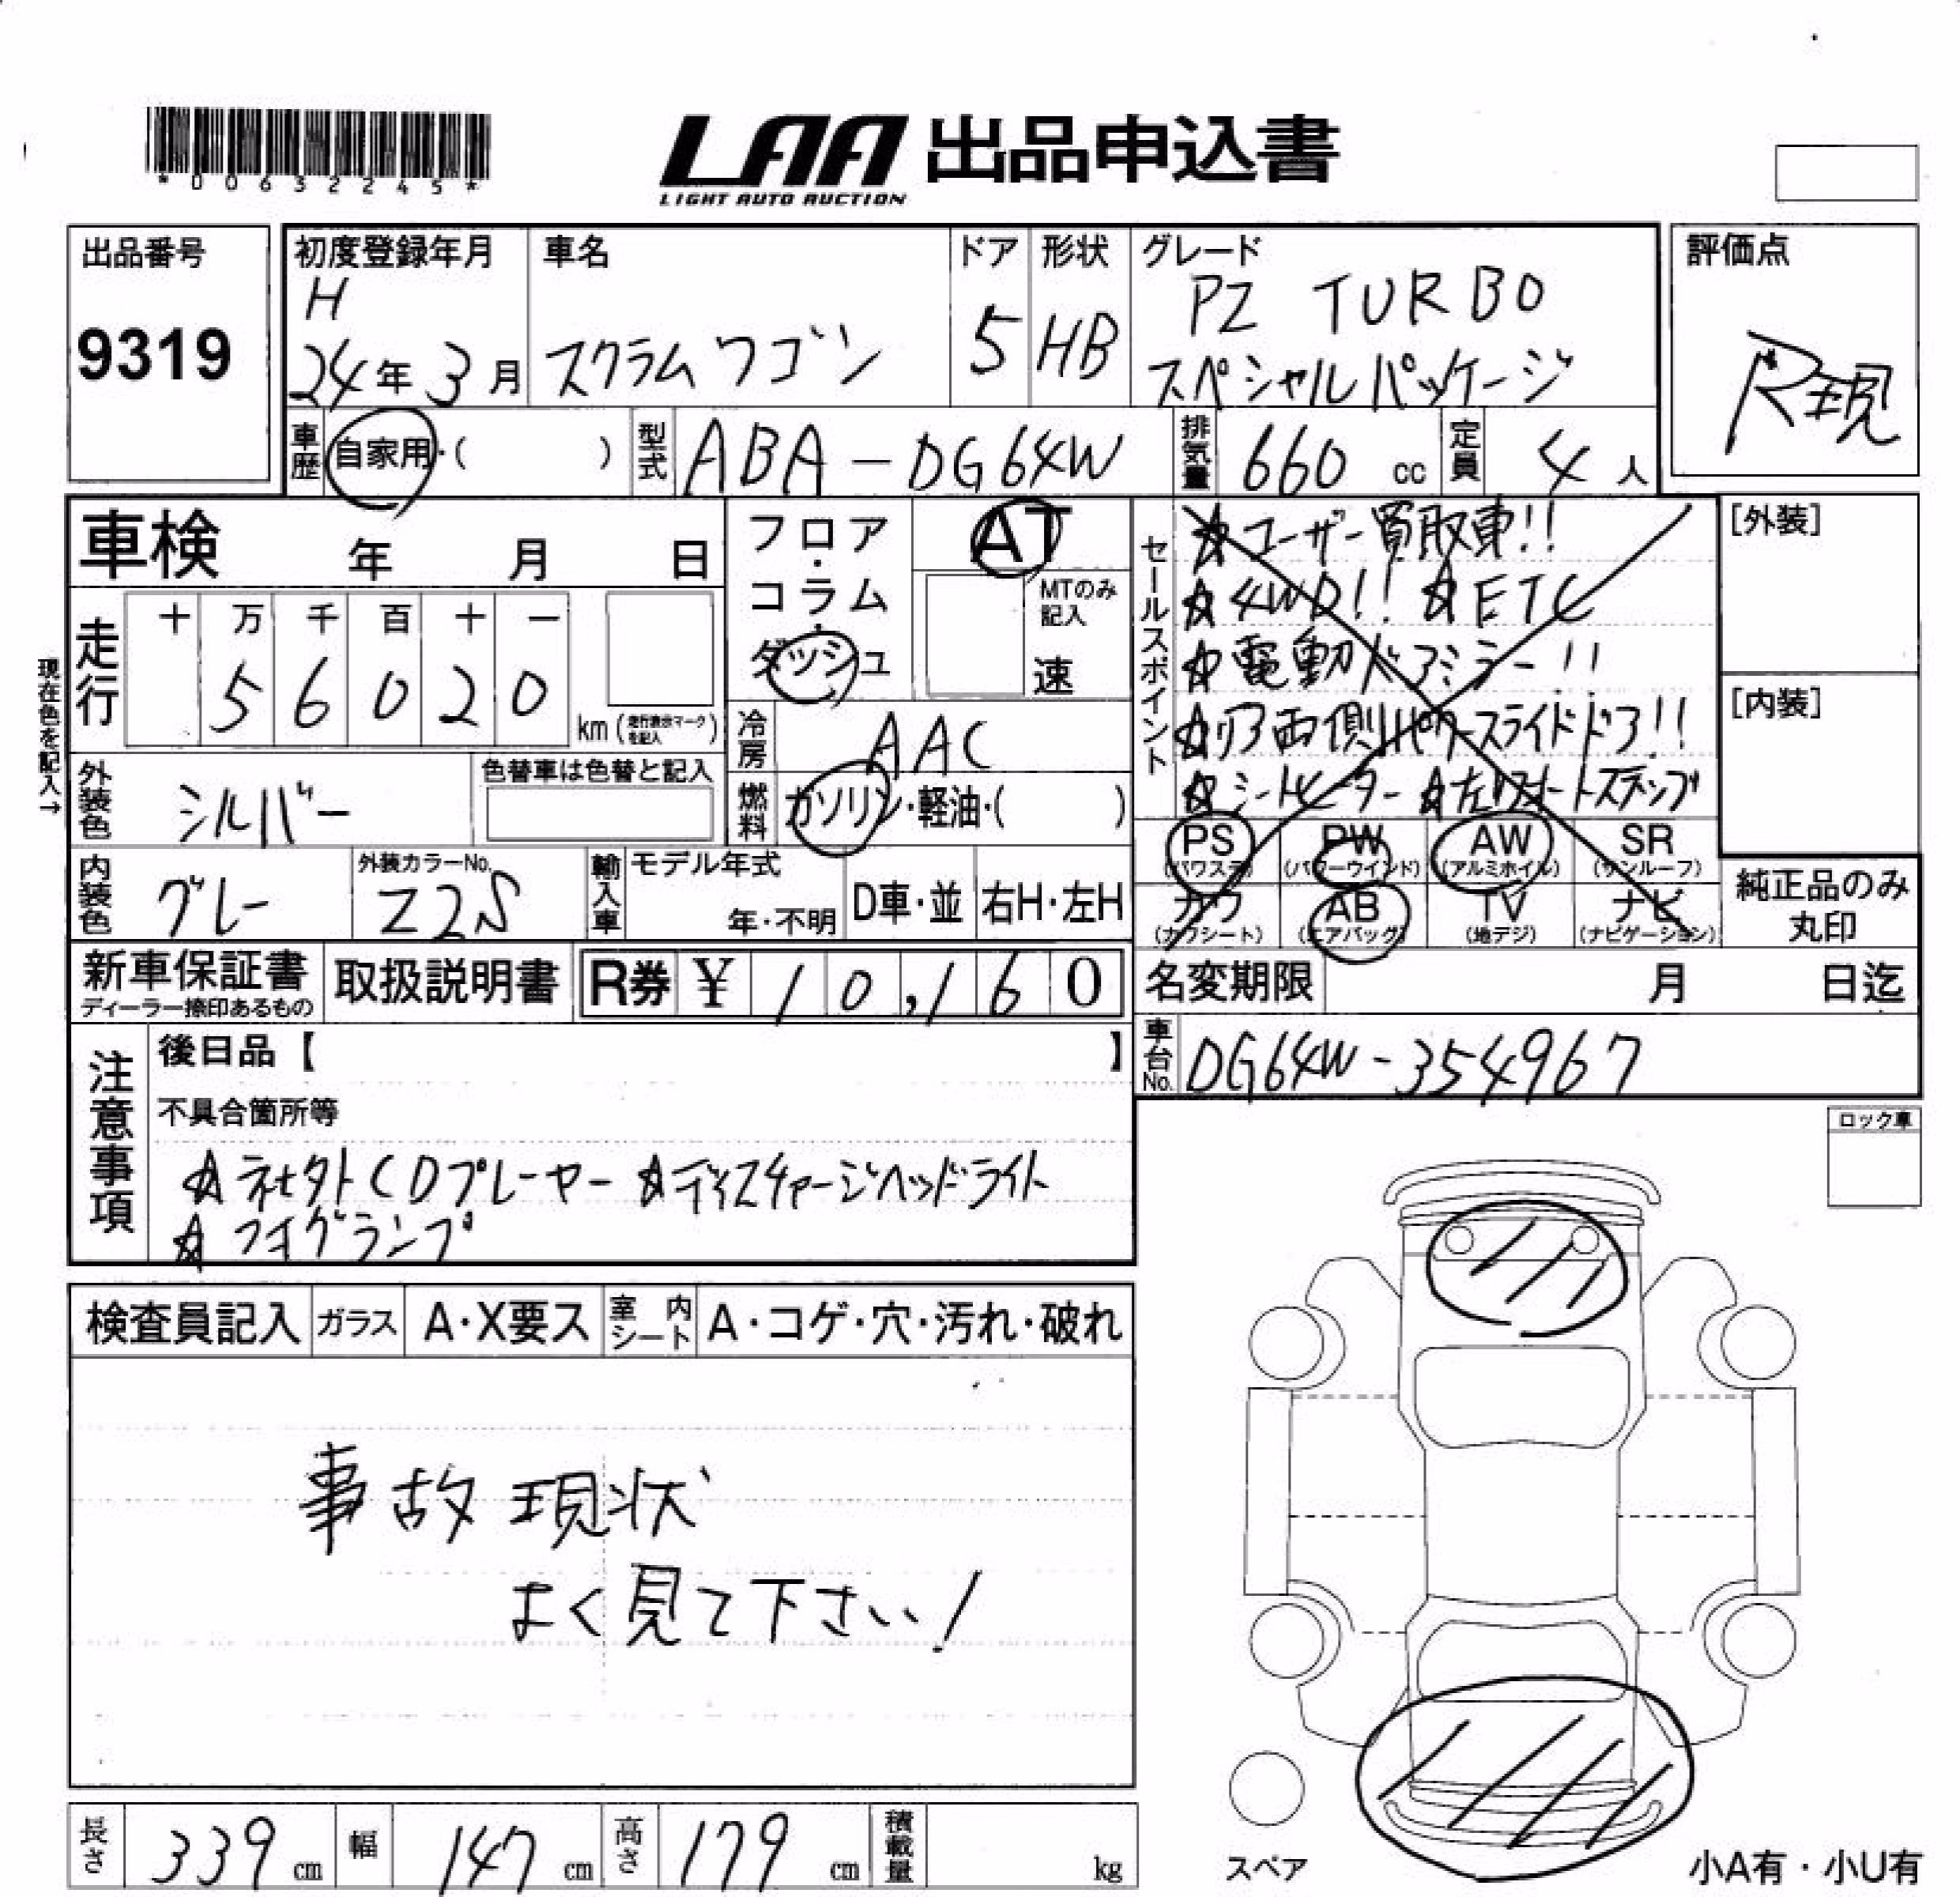 *00632245*
LAA 出品申込書
LIGHT AUTO AUCTION
出品番号
9319
初度登録年月
H
24年 3月
車名
スクラムワゴン
ドア
5
形状
HB
グレード
PZ TURBO
スペシャルパッケージ
評価点
R現
車歴
自家用・( )
型式
ABA-DG64W
排気量
660 cc
定員
4 人
車検 年 月 日
フロア・コラム・ダッシュ
AT
MTのみ記入
速
現在色を記入→
走行
十 万 千 百 十 一
5 6 0 2 0
km (走行表示マークを記入)
冷房
AAC
外装色
シルバー
色替車は色替と記入
燃料
ガソリン・軽油・( )
内装色
グレー
外装カラーNo.
Z2S
輸入車
モデル年式
年・不明
D車・並
右H・左H
セールスポイント
☆ユーザー買取車!!
☆4WD!! ☆ETC
☆電動ドアミラー!!
☆リア両側パワースライドドア!!
☆シートヒーター ☆左オートステップ
PS (パワステ)
PW (パワーウインド)
AW (アルミホイル)
SR (サンルーフ)
カワ (カワシート)
AB (エアバッグ)
TV (地デジ)
ナビ (ナビゲーション)
[外装]
[内装]
純正品のみ丸印
新車保証書
ディーラー捺印あるもの
取扱説明書
R券 ¥ 10,160
名変期限 月 日迄
車台No.
DG64W-354967
注意事項
後日品【 】
不具合箇所等
☆ネセタトCDプレーヤー ☆ディスチャージヘッドライト
☆フォグランプ
ロック車
検査員記入
ガラス
A・X要ス
室内シート
A・コゲ・穴・汚れ・破れ
事故現状
よく見て下さい!
長さ 339 cm
幅 147 cm
高さ 179 cm
積載量 kg
スペア
小A有・小U有